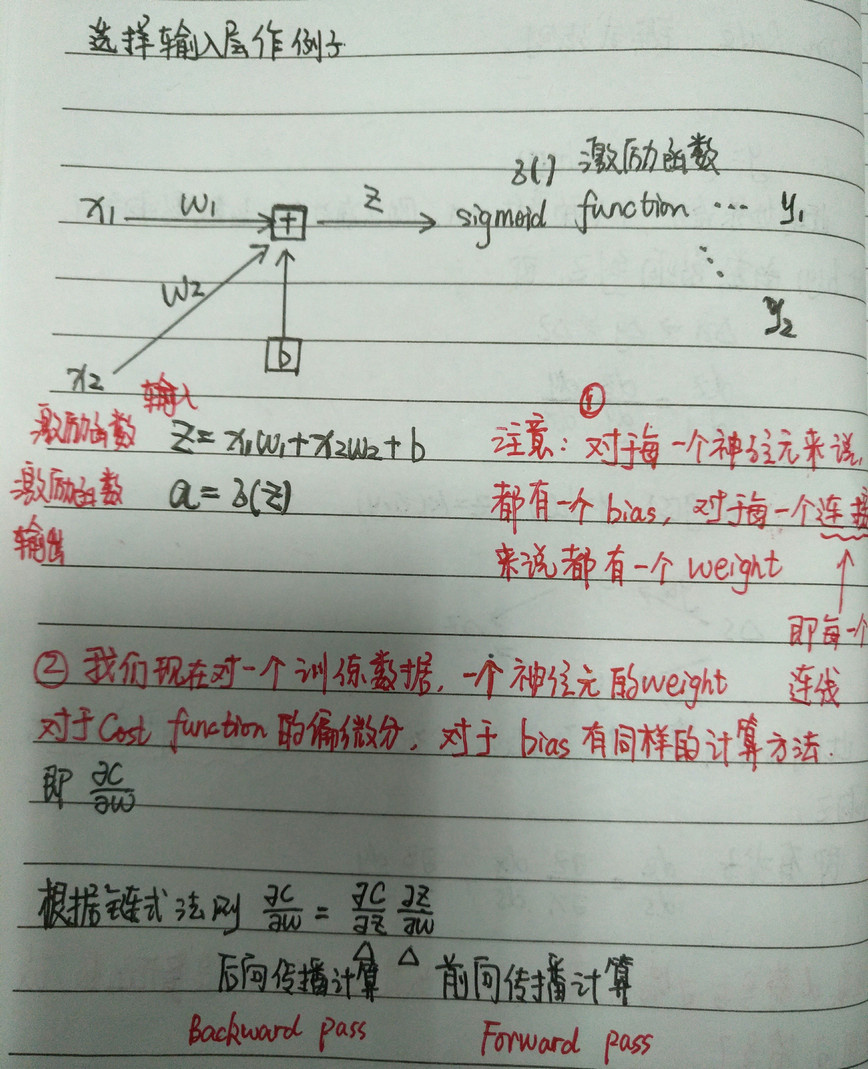 选择输入层作例子
δ() 激励函数
x₁ w₁ + z sigmoid function … y₁
w₂ ⋱
b y₂
x₂
输入
激励函数 z = x₁w₁+x₂w₂+b
激励函数 a = δ(z)
输出
①
注意：对于每一个神经元来说,
都有一个 bias, 对于每一个连接
来说都有一个 weight
即每一个
连线
② 我们现在对一个训练数据, 一个神经元的weight
对于Cost function 的偏微分, 对于 bias 有同样的计算方法.
即 ∂C/∂w
根据链式法则 ∂C/∂w = ∂C/∂z ∂z/∂w
后向传播计算 △ △ 前向传播计算
Backward pass Forward pass